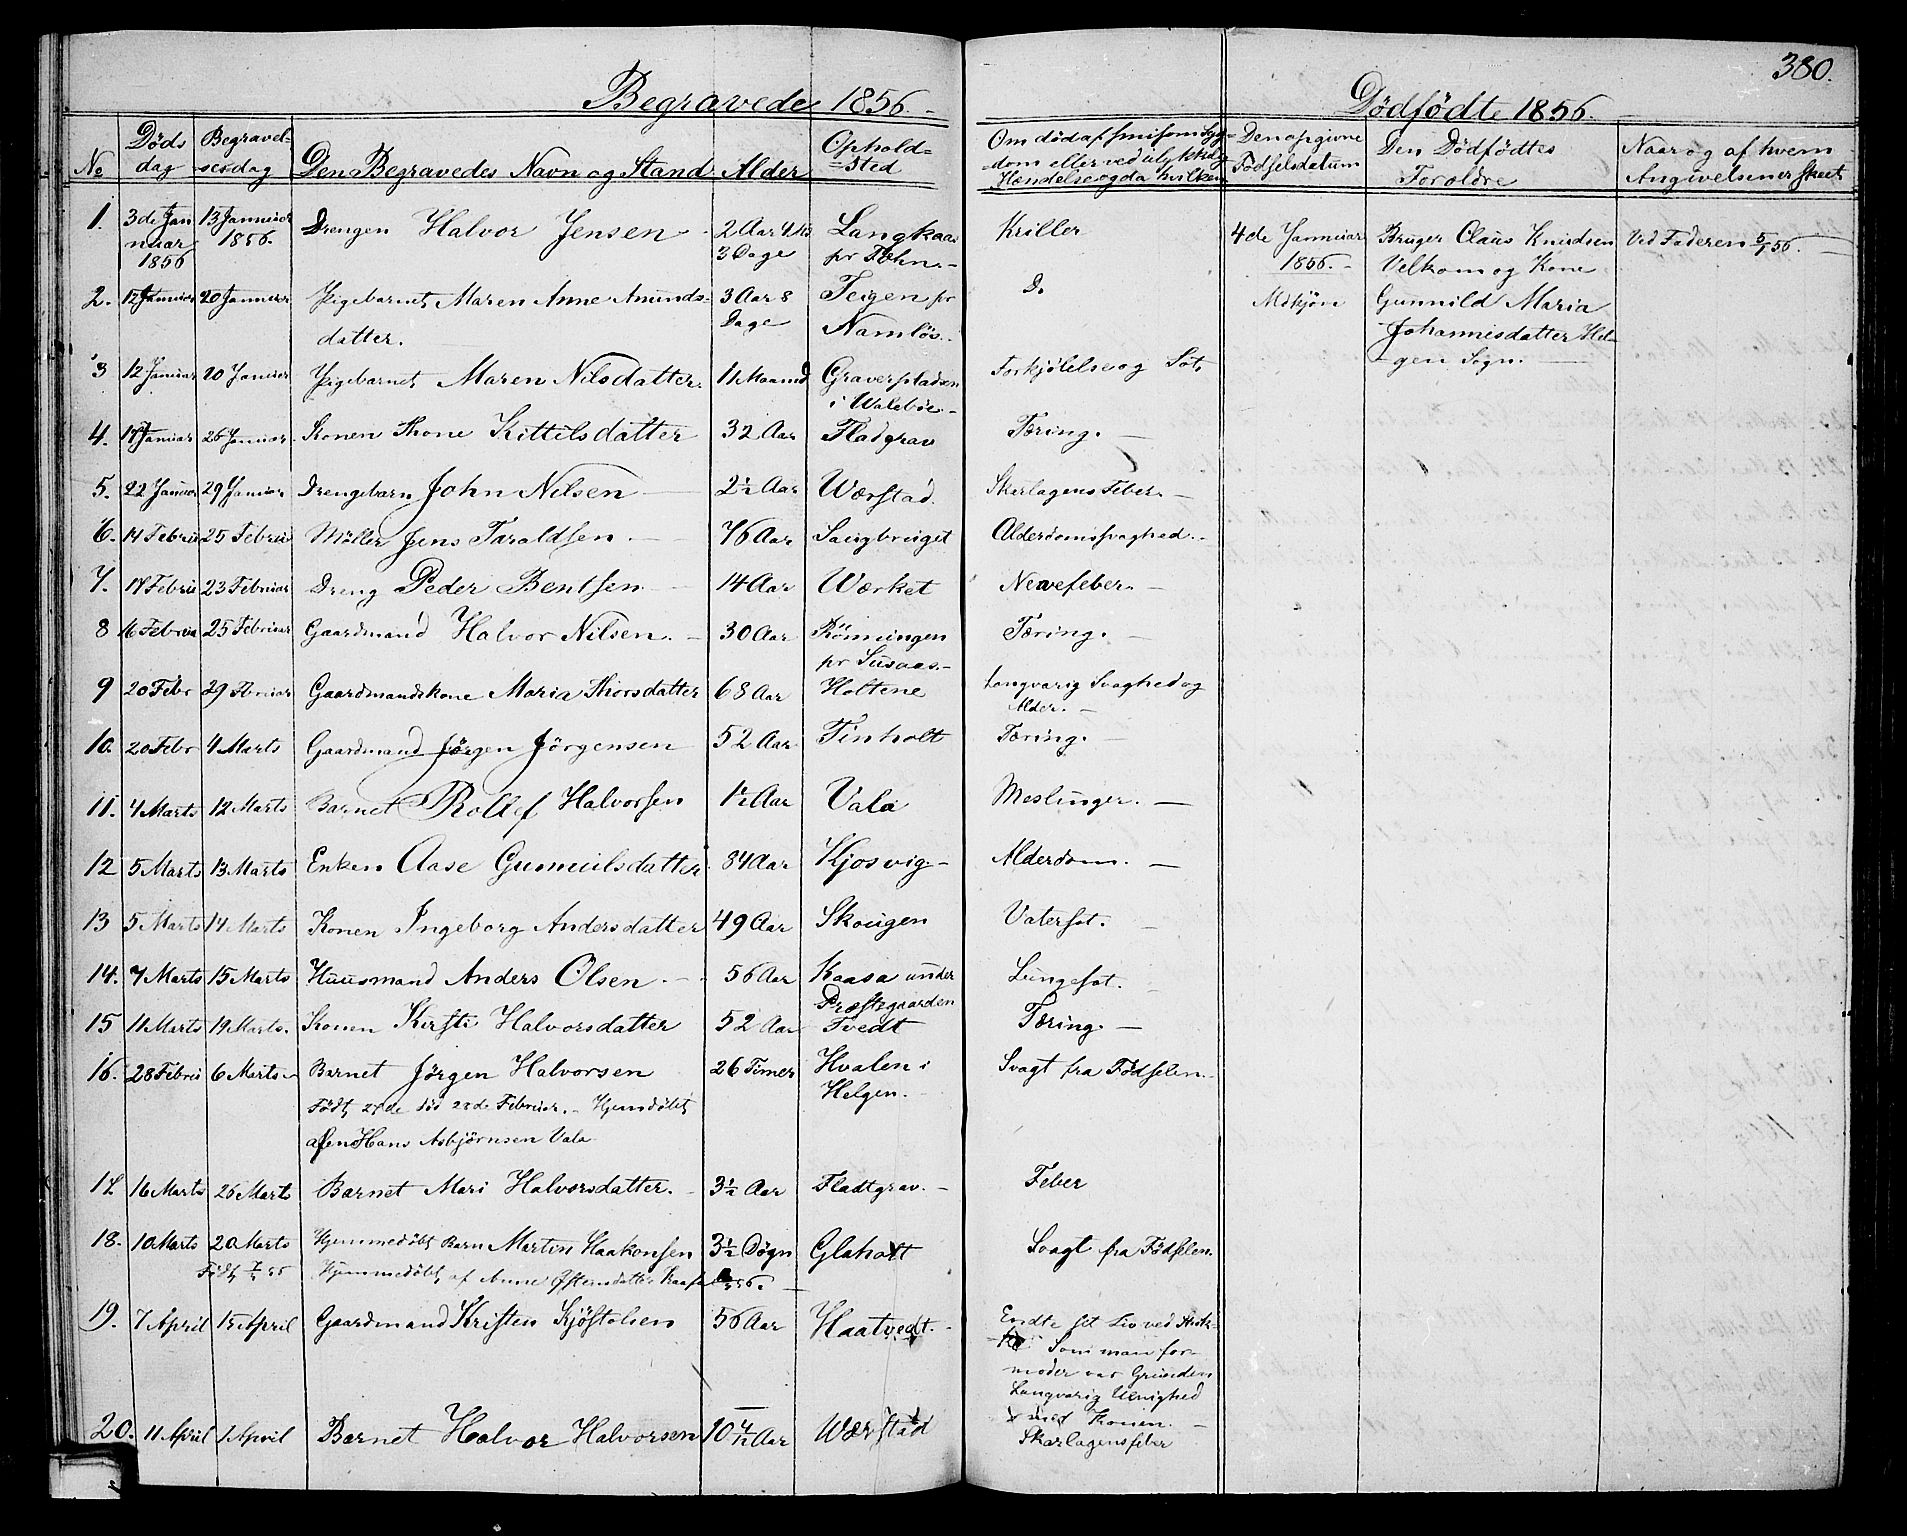 380.
Begravede 1856.
No Døds dag Begravelsesdag Den Begravedes Navn og Stand Alder Ophold=sted
1. 3de Januar 1856 13 Januar 1856. Drengen Halvor Jensen 2 Aar 3 Dage Langkaas pr Kriller
2. 20 Januar Pigebarnet Maren Anne Amundsdatter. 3 Aar 8 Dage Teigen pr Namløs. Do
3 12 Januar 20 Januar Pigebarnet Maren Nilsdatter. 11 Maaned Graverpladsen i Waleböe Forkjølelse og
4. 26 Januar Konen Thone Kittilsdatter 32 Aar Fladgrav Tæring.
5. 22 Januar 29 Januar Drengebarn John Nilsen 2½ Aar Wærstad. Skarlagens Feber.
6. 14 Februar 25 Februar Møller Jens Taraldsen 76 Aar Saugbruget Alderdomssvaghed.
7. 23 Februar Dreng Peder Bentsen 14 Aar Wærket Nervefeber.
8 16 Februar 25 Februar Gaardmand Halvor Nilsen. 30 Aar Rönningen pr Susaas. Tæring.
9 20 Febr 29 Februar Gaardmandskone Maria Thorsdatter 68 Aar Holtene Langvarig Svaghed og Alder.
10. 20 Febr 4 Marts Gaardmand Jörgen Jörgensen 52 Aar Tinholt Tæring.
11. 4 Marts 12 Marts Barnet Rollef Halvorsen 1½ Aar Vala Meslinger.
12 5 Marts 13 Marts Enken Aase Gunnulsdatter 84 Aar Kjosvig Alderdom.
13 5 Marts 14 Marts Konen Ingeborg Andersdatter 49 Aar Skougen Vatersot.
14. 7 Marts 15 Marts Huusmand Anders Olsen. 56 Aar Kaasa under Præstegaarden Lungesot.
15 11 Marts 19 Marts. Konen Kirsti Halvorsdatter 52 Aar Tvedt Tæring.
16. 28 Febru 6 Marts Barnet Jörgen Halvorsen 26 Timer Hvalen i Helgen. Svagt fra Födselen.
Födt 27de död 28de Februar. Hjemdöbt
af Hans Asbjörnsen Vala
17 16 Marts 26 Marts Barnet Mari Halvorsdatter. 3½ Aar Fladtgrav. Feber
18. 10 Marts 20 Marts Hjemmedöbt Barn Martin Haakonsen 3½ Dögn Glaholt Svagt fra Födselen.
Hjemmedöbt af Anne
19. 7 April 15 April Gaardmand Kristen Kjöstolsen 56 Aar Haatvedt. Endte sit Liv ved
Som man for-
moder var Grunden
Langvarig Uenighed
med Konen.
20. 11 April 1 April Barnet Halvor Halvorsen 10 Aar Wærstad Skarlagensfeber
Om död af smitsom Syg-
dom eller ved ulykkelig
Hændelse og da hvilken
Dödfödte 1856.
Den opgivne Födselsdatum Den Dödfödtes Foroldre Naar og af hvem Angivelsener skeet
4de Januar 1856. Bruger Claus Knudsen Ved Faderen 5/1 56.
Velkom og Kone
Gunnild Maria
Johannesdatter Hel-
gen Sogn.